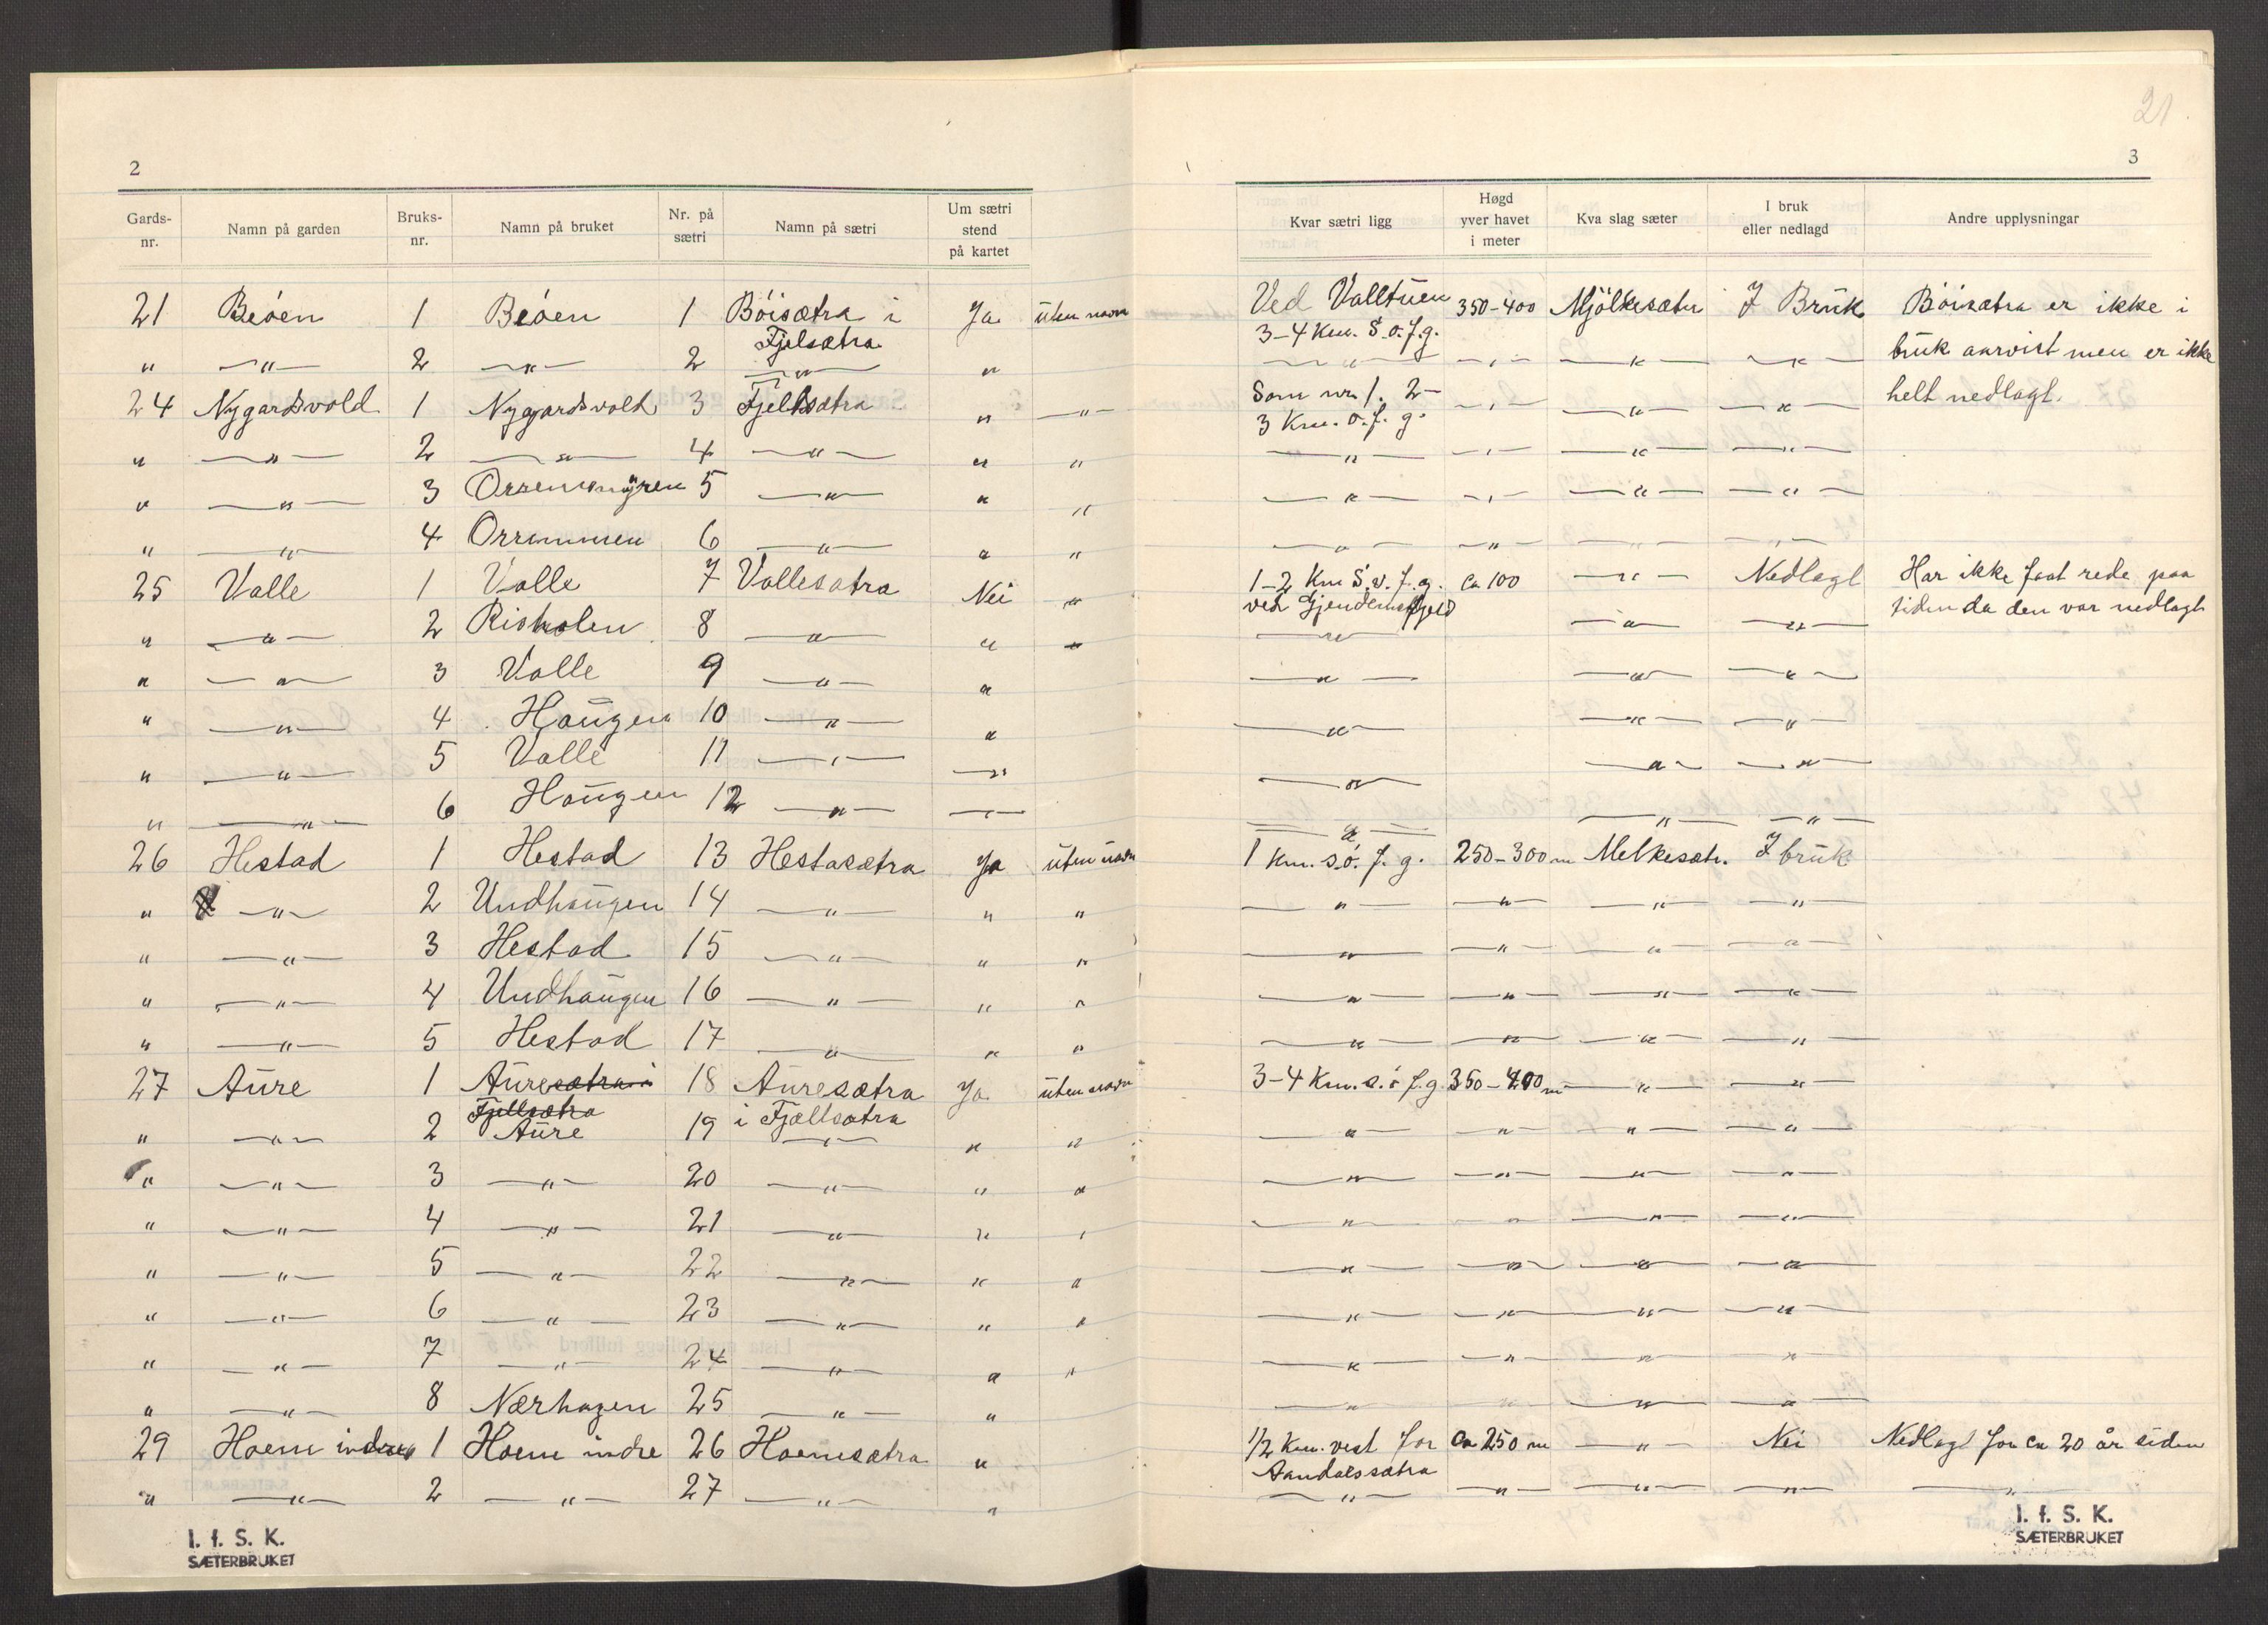 21
2
3
Gards-nr. Namn på garden Bruks-nr. Namn på bruket Nr. på sætri Namn på sætri Um sætri stend på kartet Kvar sætri ligg Høgd yver havet i meter Kva slag sæter I bruk eller nedlagd Andre upplysningar
21 Beöen 1 Beöen 1 Böisætra i Fjelsætra Ja uten navn Ved Valltuen 3-4 Km. S.ö.f.g. 350-400 Mjölkesæter I Bruk Böisætra er ikke i
" —"— 2 —"— 2 —"— " —"— —"— —"— —"— bruk aarvist men er ikke
24 Nygardsvold 1 Nygardsvold 3 Fjellsætra " —"— Som nr. 1. 2-3 Km. ö.f.g. —"— —"— —"— helt nedlagt.
" —"— 2 —"— 4 —"— " " —"— —"— —"— —"—
" —"— 3 Orremmyren 5 —"— " " —"— —"— —"— —"—
" —"— 4 Orremmen 6 —"— " " —"— —"— —"— —"—
25 Valle 1 Valle 7 Vallesætra Nei " 1-2 Km S.v.f.g. ved Gjendemsfjeld ca 100 —"— Nedlagt Har ikke faat rede paa
" —"— 2 Risholen 8 —"— " " —"— —"— —"— tiden da den var nedlagt
" —"— 3 Valle 9 —"— " —"— —"— —"—
" —"— 4 Haugen 10 —"— " —"— —"— —"—
" —"— 5 Valle 11 —"— —"— —"— —"— —"—
" —"— 6 Haugen 12 —"— —"— —"— —"— —"—
26 Hestad 1 Hestad 13 Hestasætra Ja uten navn 1 Km. s.ö. f. g. 250-300 m Melkesætr. I bruk
" —"— 2 Undhaugen 14 —"— " " —"— —"— —"— —"—
" —"— 3 Hestad 15 —"— " " —"— —"— —"— —"—
" —"— 4 Undhaugen 16 —"— " " —"— —"— —"— —"—
" —"— 5 Hestad 17 —"— " " —"— —"— —"— —"—
27 Aure 1 Auresætra i Fjellsætra 18 Auresætra i Fjællsætra Ja uten navn 3-4 Km. s.ö f.g. 350-400 m —"— —"—
" —"— 2 Aure 19 —"— " " —"— —"— —"— —"—
" —"— 3 —"— 20 —"— " " —"— —"— —"— —"—
" —"— 4 —"— 21 —"— " " —"— —"— —"— —"—
" —"— 5 —"— 22 —"— " " —"— —"— —"— —"—
" —"— 6 —"— 23 —"— " " —"— —"— —"— —"—
" —"— 7 —"— 24 —"— " " —"— —"— —"— —"—
" —"— 8 Nærhagen 25 —"— " —"— —"— —"— —"—
29 Hoem indre 1 Hoem indre 26 Hoemsætra " 1/2 Km. vest for Aandalssætra Ca 250 m —"— Nei Nedlagt for ca 20 år siden
" —"— 2 —"— 27 —"— " —"— —"— —"— —"— —"—
I. f. S. K.
SÆTERBRUKET
I. f. S. K.
SÆTERBRUKET